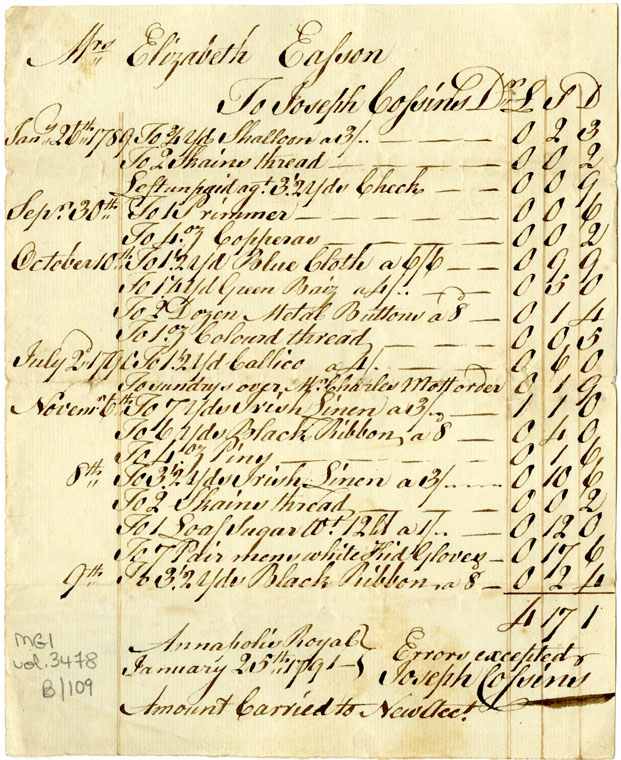 Mrs Elizabeth Easson
To Joseph Cossins Dr £ S D
Jany 26th 1789 To ¾ yd Shalloon a 3/.. 0 2 3
To 2 Skains thread 0 0 2
Left unpaid agt 3½ yds Check 0 0 9
Sepr 30th To 1 Trimmer 0 0 6
To 4 oz Copperas 0 0 2
October 10th To 1½ yd Blue Cloth a 6/6 0 9 9
To 1¼ yd Green Baiz a 4/.. 0 5 0
To 2 Dozen Metal Buttons a 8d 0 1 4
To 1 oz Colourd thread 0 0 5
July 2d 1790 To 1½ yd Callico a 4/. 0 6 0
To sundrys over Mr Charles Mott order 0 1 9
Novemr 6th To 7 yds Irish Linen a 3/.. 1 1 0
To 6 yds Black Ribbon, a 8 0 4 0
To 4 oz Piny 0 1 6
8th To 3½ yds Irish Linen a 3/. 0 10 6
To 2 Skains thread 0 0 2
To 1 Loaf Sugar Wt 12 lb a 1/.. 0 12 0
To 7 Pair mens white Kid Gloves 0 17 6
9th To 3½ yds Black Ribbon, a 8 0 2 4
4 17 1
Annapolis Royal
January 25th 1791
Errors excepted
Joseph Cossins
Amount Carried to New Acct.
MG1
vol. 3478
B/109